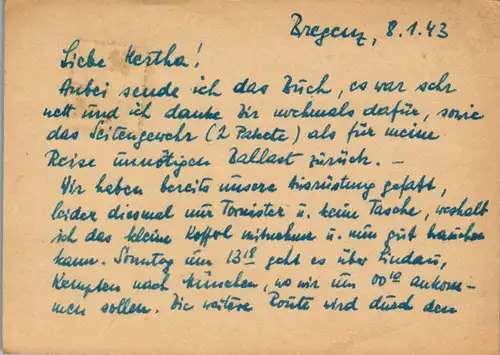 Bregenz, 8.1.43
Liebe Hertha!
Anbei sende ich das Buch, es war sehr
nett und ich danke Dir nochmals dafür, sowie
das Seitengewehr (2 Pakete) als für meine
Reise unnötigen Ballast zurück. —
Wir haben bereits unsere Ausrüstung gefaßt,
leider diesmal nur Tornister u. keine Tasche, weshalb
ich das kleine Koffel mitnehme u. nun gut brauchen
kann. Sonntag um 13 10 geht es über Lindau,
Kempten nach München, wo wir um 00 10 ankom-
men sollen. Die weitere Route wird durch den